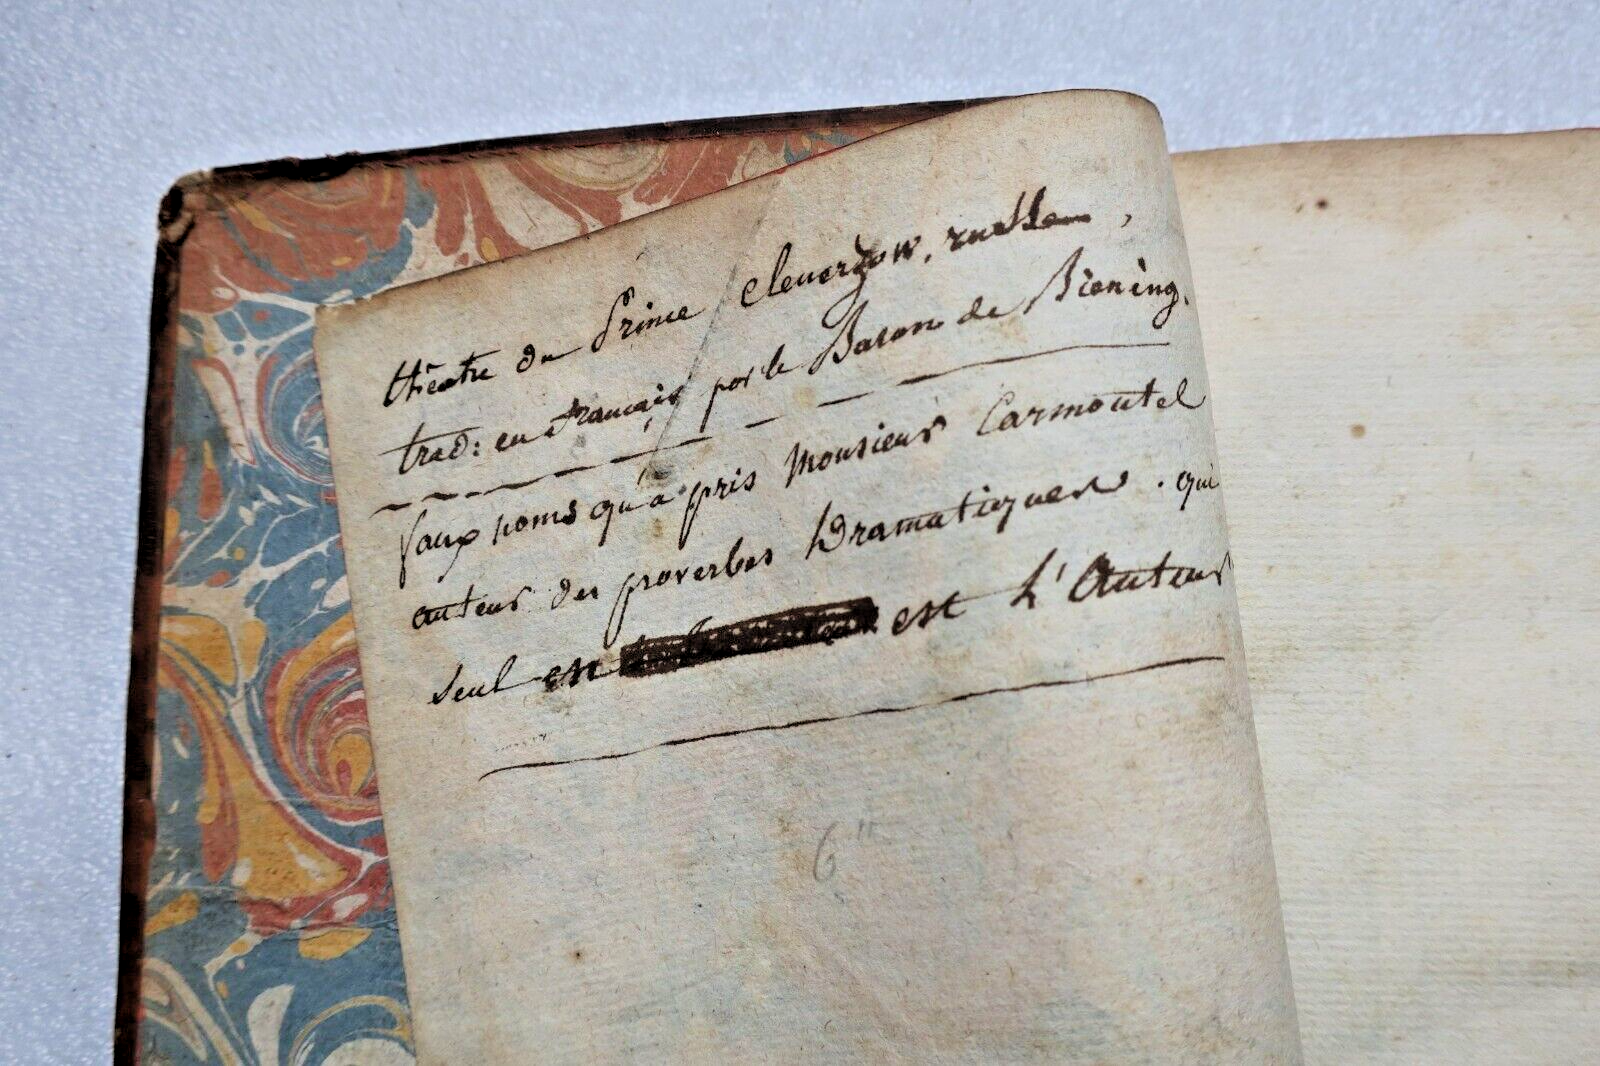 théatre du Prince Clenerzow, russe,
trad: en français par le Baron de Blening.
faux noms qu'a pris Monsieur Carmontel
auteur des proverbes Dramatiques. qui
seul en est L'Auteur
6"